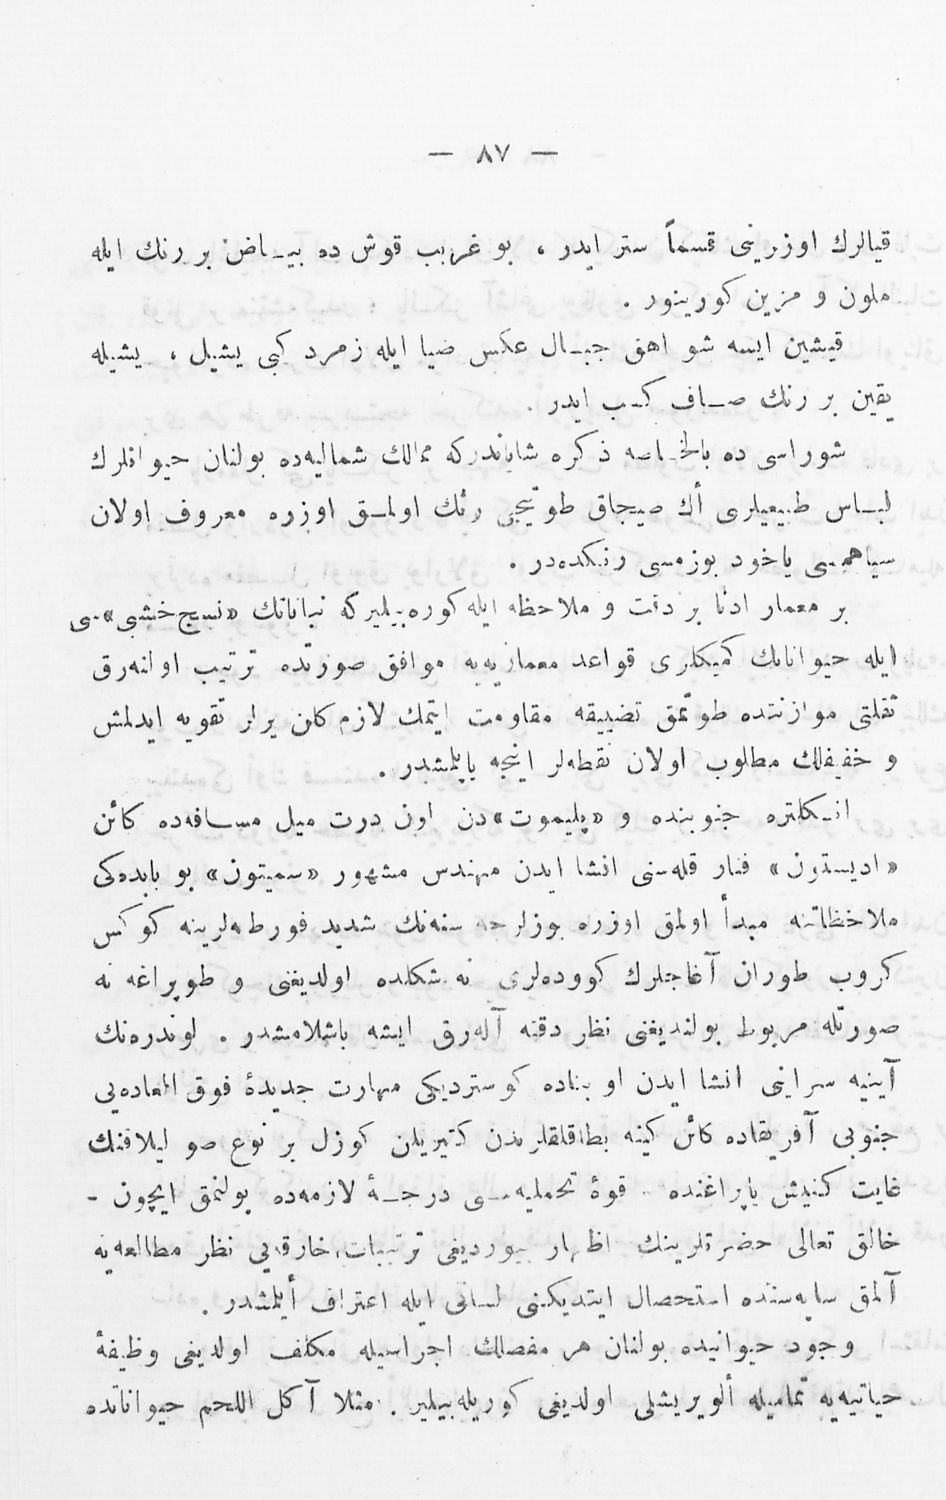 — ٨٧ —
قيالرك اوزرينى قسماً ستر ايدر ، بو غريب قوش ده بيـاض بر رنك ايله
ملون و مزين كورينور .
قيشين ايسه شو اهق جبـال عكس ضيا ايله زمرد كبى يشيل ، يشيله
يقين بر رنك صـاف كسب ايدر .
شوراسى ده بالخـاصه ذكره شاياندركه ممالك شماليه‌ده بولنان حيوانلرك
لبـاس طبيعيلرى أك صيجاق طوتيجى رنك اولمـق اوزره معروف اولان
سياهمسى ياخود بوزمسى رنكده‌در .
بر معمار ادنا بر دقت و ملاحظه ايله كوره‌بيليركه نباتاتك «نسج خشبى»ـى
ايله حيواناتك كميكلرى قواعد معماريه‌يه موافق صورتده ترتيب اولنه‌رق
ثقلتى موازنتده طوتمق تضييقه مقاومت ايتمك لازم كلن يرلر تقويه ايدلمش
و خفيفلك مطلوب اولان نقطه‌لر اينجه ياپلمشدر .
انـكلتره جنوبنده و «پليموت»دن اون درت ميل مسـافه‌ده كائن
«اديستون» فنار قله‌سنى انشا ايدن مهندس مشهور «سميتون» بو بابده‌كى
ملاحظاتنه مبدأ اولمق اوزره يوزلرجه سنه‌نك شديد فورطه‌لرينه كوكس
كروب طوران آغاجلرك كووده‌لرى نه شكلده اولديغنى و طوپراغه نه
صورتله مربوط بولنديغنى نظر دقته آله‌رق ايشه باشلامشدر . لوندره‌نك
آيينه سراينى انشا ايدن او بناده كوسترديكى مهارت جديدهٔ فوق العاده‌يى
جنوبى آفريقاده كائن كينه بطاقلقلرندن كتيريلن كوزل بر نوع صو ليلاقنك
غايت كنيش ياپراغنده قوهٔ تحمليه‌سـى درجـهٔ لازمه‌ده بولنمق ايچون -
خالق تعالى حضرتلرينك اظهار بيورديغى ترتيبات خارقه‌يى نظر مطالعه‌يه
آلمق سايه‌سنده استحصال ايتديكنى لسانى ايله اعتراف أيلمشدر .
وجود حيوانيده بولنان هر مفصلك اجراسيله مكلف اولديغى وظيفهٔ
حياتيه‌يه تماميله ألويريشلى اولديغى كوريله‌بيلير . مثلا آكل اللحم حيواناتده